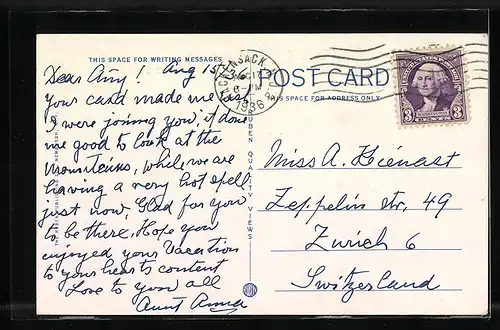 THIS SPACE FOR WRITING MESSAGES
Dear Amy! Aug 15
your card made me as if
I were joining you, it done
me good to look at the
Mountains, while we are
having a very hot spell
just now, Glad for you
to be there, Hope you
enjoyed your Vacation
to your hearts content
Love to you all
Aunt Anna
HACKENSACK
6 PM
1936
POST CARD
THIS SPACE FOR ADDRESS ONLY
UNITED STATES POSTAGE
3 3
CENTS
QUALITY VIEWS
Miss A. Kienast
Zeppelin Str, 49
Zurich 6
Switzerland